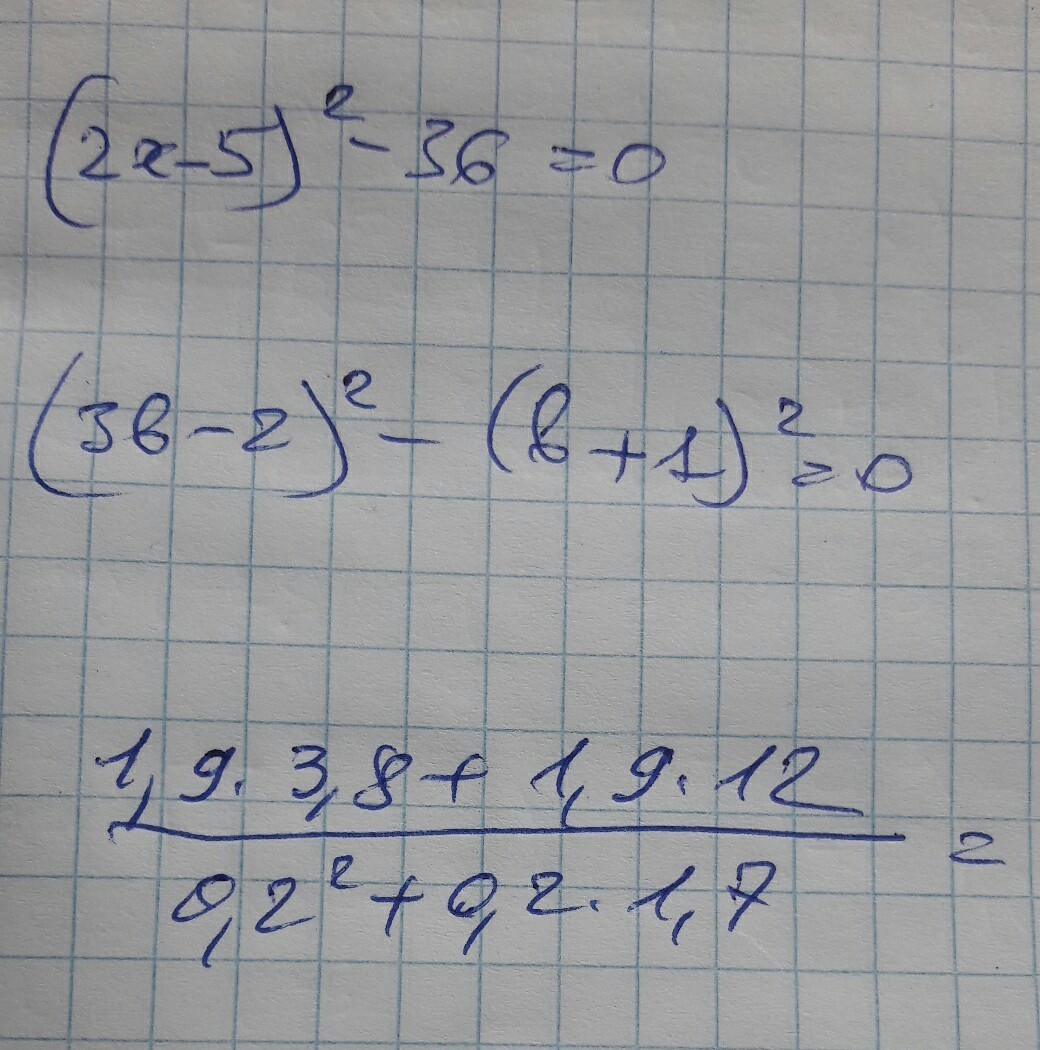 (2x-5)² - 36 = 0
(3в-2)² - (в+1)² = 0
1,9·3,8+1,9·12
0,2²+0,2·1,7 =